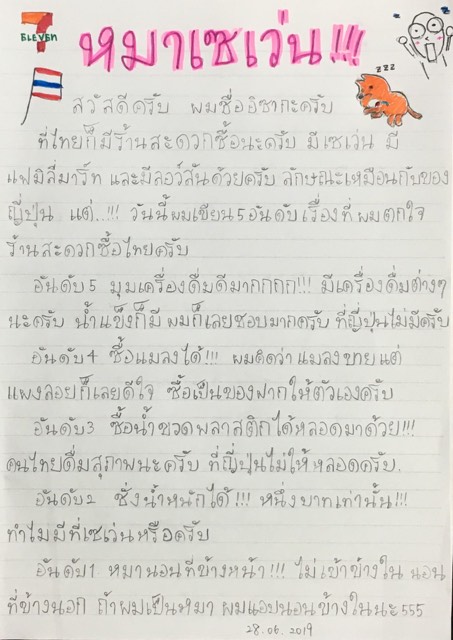 7
ELEVEN
หมาเซเว่น!!!
zz
z
zzz
สวัสดีครับ ผมชื่ออิซากะครับ
ที่ไทยก็มีร้านสะดวกซื้อนะครับ มีเซเว่น มี
แฟมิลี่มาร์ท และมีลอว์สันด้วยครับ ลักษณะเหมือนกับของ
ญี่ปุ่น แต่..!!! วันนี้ผมเขียน5อันดับเรื่องที่ผมตกใจ
ร้านสะดวกซื้อไทยครับ
อันดับ5 มุมเครื่องดื่มดีมากกกก!!! มีเครื่องดื่มต่างๆ
นะครับ น้ำแข็งก็มี ผมก็เลยชอบมากครับ ที่ญี่ปุ่นไม่มีครับ
อันดับ4 ซื้อแมลงได้!!! ผมคิดว่าแมลงขายแต่
แผงลอยก็เลยดีใจ ซื้อเป็นของฝากให้ตัวเองครับ
อันดับ3 ซื้อน้ำขวดพลาสติกได้หลอดมาด้วย!!!
คนไทยดื่มสุภาพนะครับ ที่ญี่ปุ่นไม่ให้หลอดครับ.
อันดับ2 ชั่งน้ำหนักได้!!! หนึ่งบาทเท่านั้น!!!
ทำไมมีที่เซเว่นหรือครับ
อันดับ1. หมานอนที่ข้างหน้า!!! ไม่เข้าข้างใน นอน
ที่ข้างนอก ถ้าผมเป็นหมา ผมแอบนอนข้างในนะ555
28.06.2019